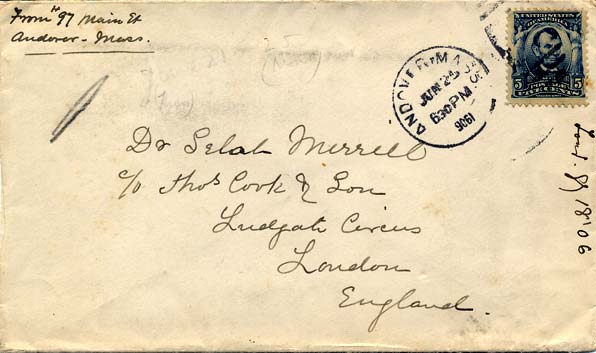 From 97 Main St
Andover - Mass.
ANDOVER MASS.
JUN 25
630PM
1906
UNITED STATES
OF AMERICA
5 5
FIVE CENTS
Dr Selah Merrell
c/o Thos Cook & Son
Ludgate Circus
London
England.